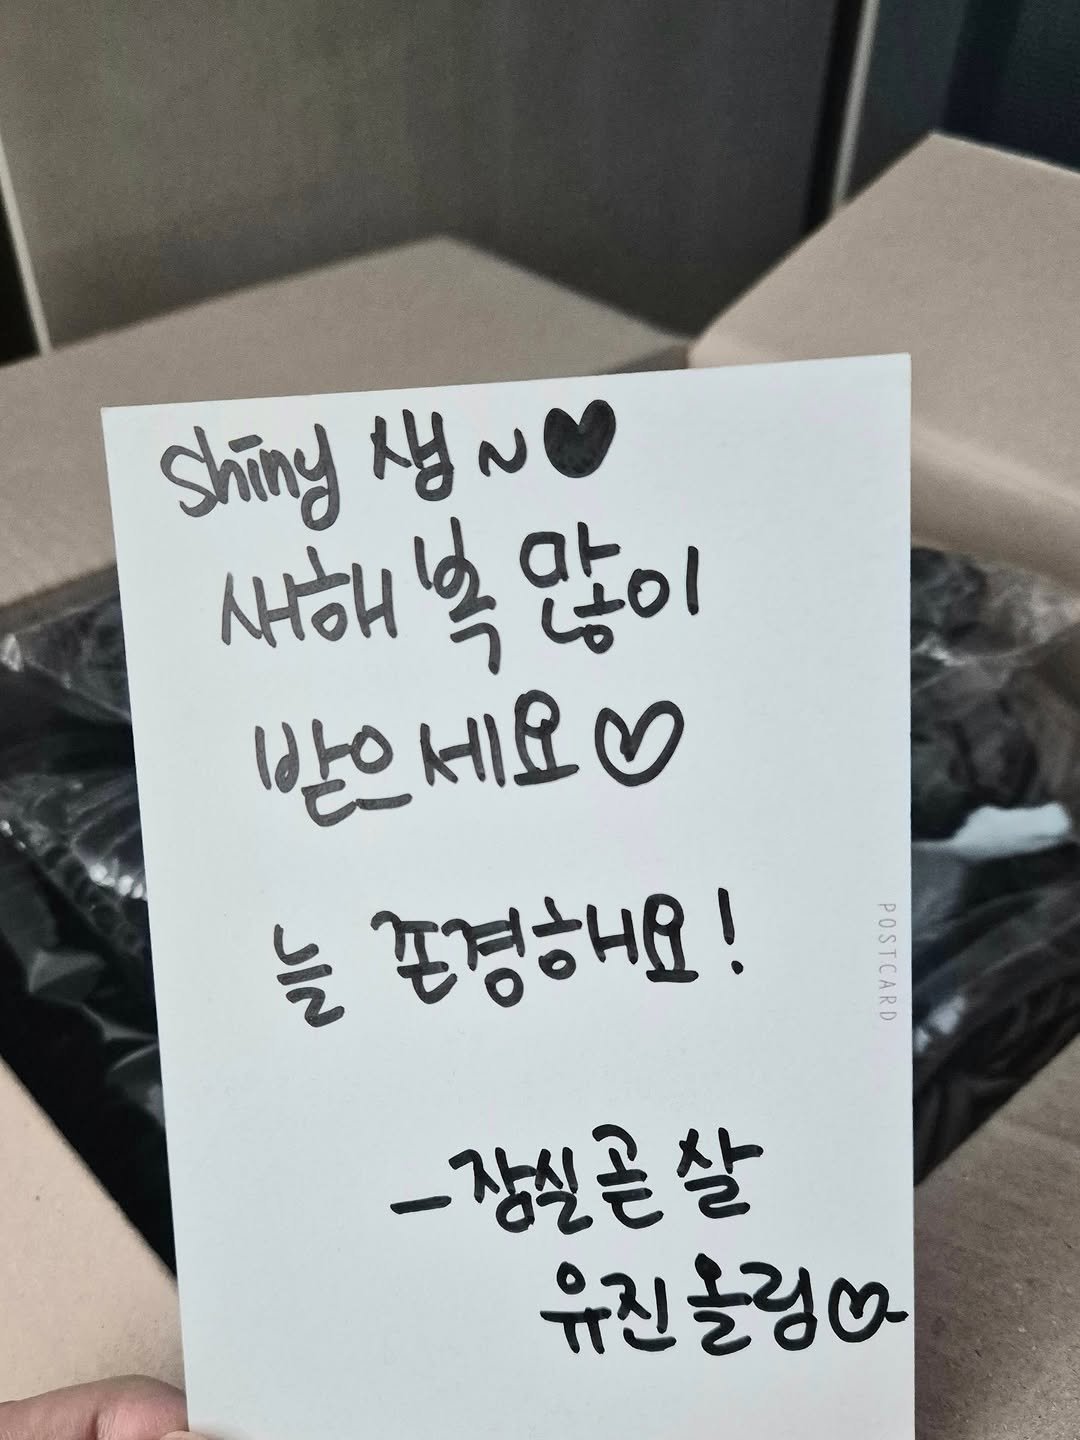 Shiny 샘~♥
새해 복 많이
받으세요♡
늘 존경해요!
POSTCARD
-잠실곧살
유진올림♡